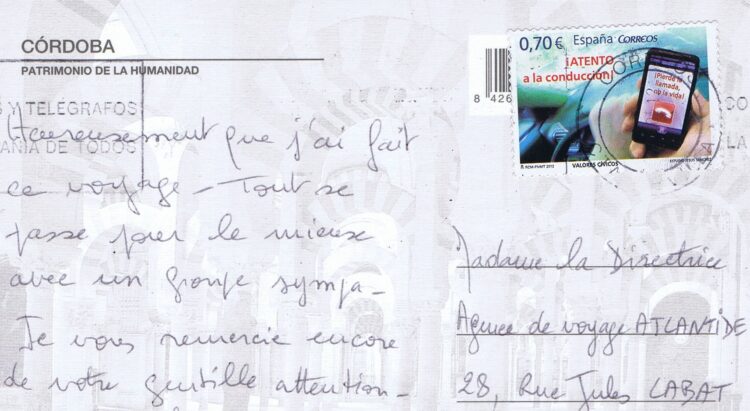 CÓRDOBA
PATRIMONIO DE LA HUMANIDAD
Y TELÉGRAFOS
DE TODOS
Heureusement que j'ai fait
ce voyage - Tout se
passe pour le mieux
avec un groupe sympa -
Je vous remercie encore
de votre gentille attention -
8 426
0,70 € España CORREOS
¡ATENTO
a la conducción!
¡Pierde la
llamada,
no la vida!
VALORES CÍVICOS
Madame la Directrice
Agence de voyage ATLANTIDE
28, Rue Jules LABAT